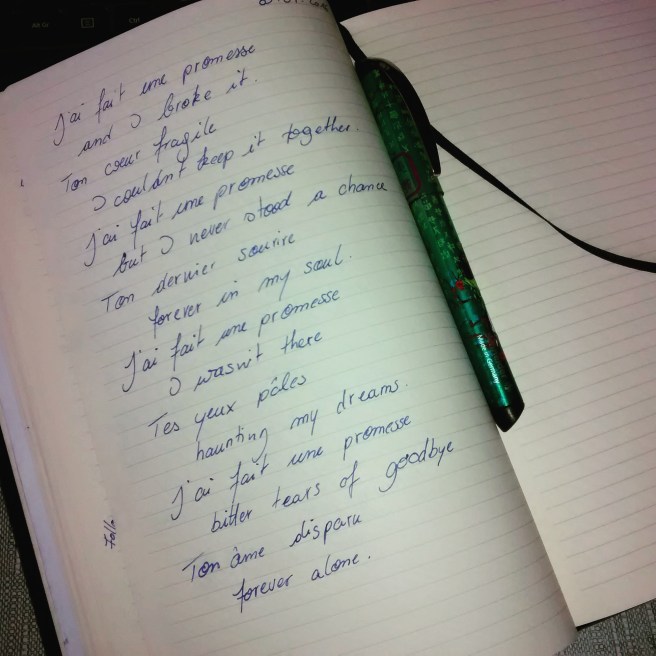 J'ai fait une promesse
and I broke it.
Ton cœur fragile
I couldn't keep it together.
J'ai fait une promesse
but I never stood a chance
Ton dernier sourire
forever in my soul.
J'ai fait une promesse
I wasn't there
Tes yeux pâles
haunting my dreams.
J'ai fait une promesse
bitter tears of goodbye
Ton âme disparu
forever alone.
Made in Germany
Alt Gr
Ctrl